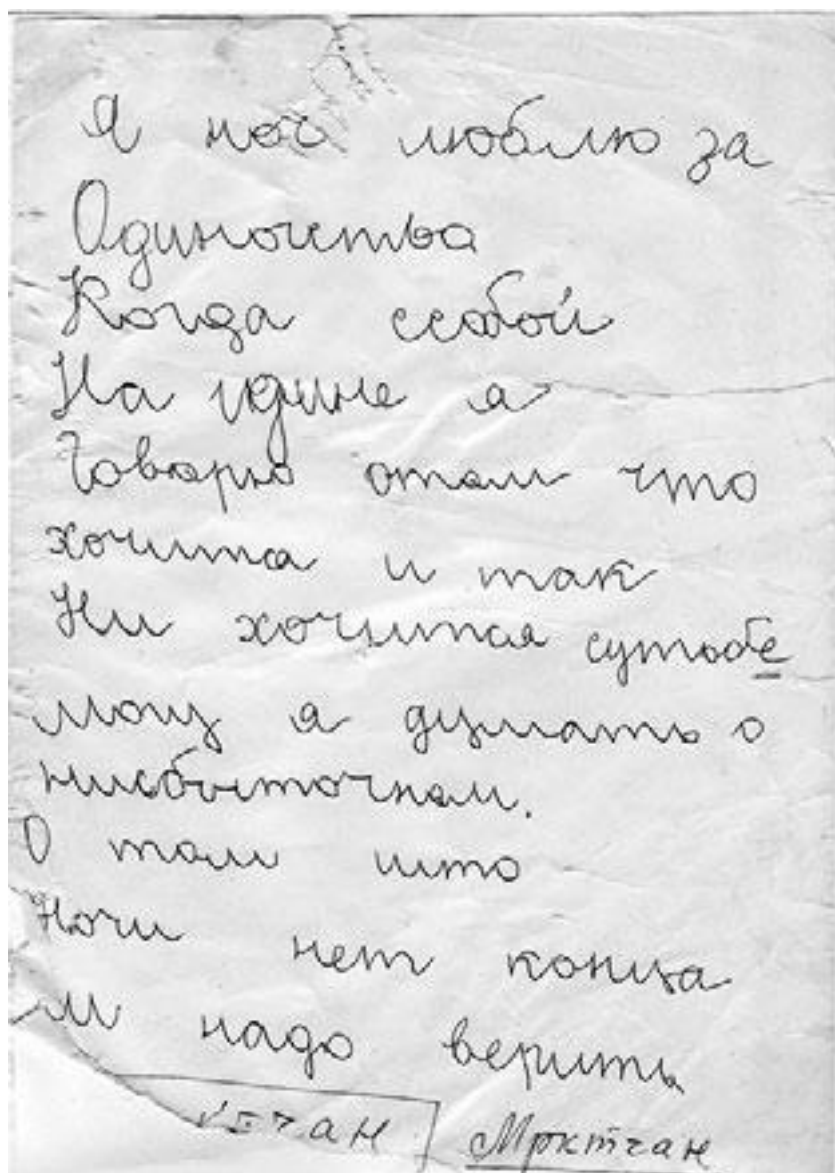 Я ноч люблю за
Одиночества
Когда ссобой
На идине я
Говорю отом что
хочита и так
Ни хочится сутьбе
могу я думать о
нисбыточном.
О том што
Ночи нет конца
И надо верить
Мрктчан